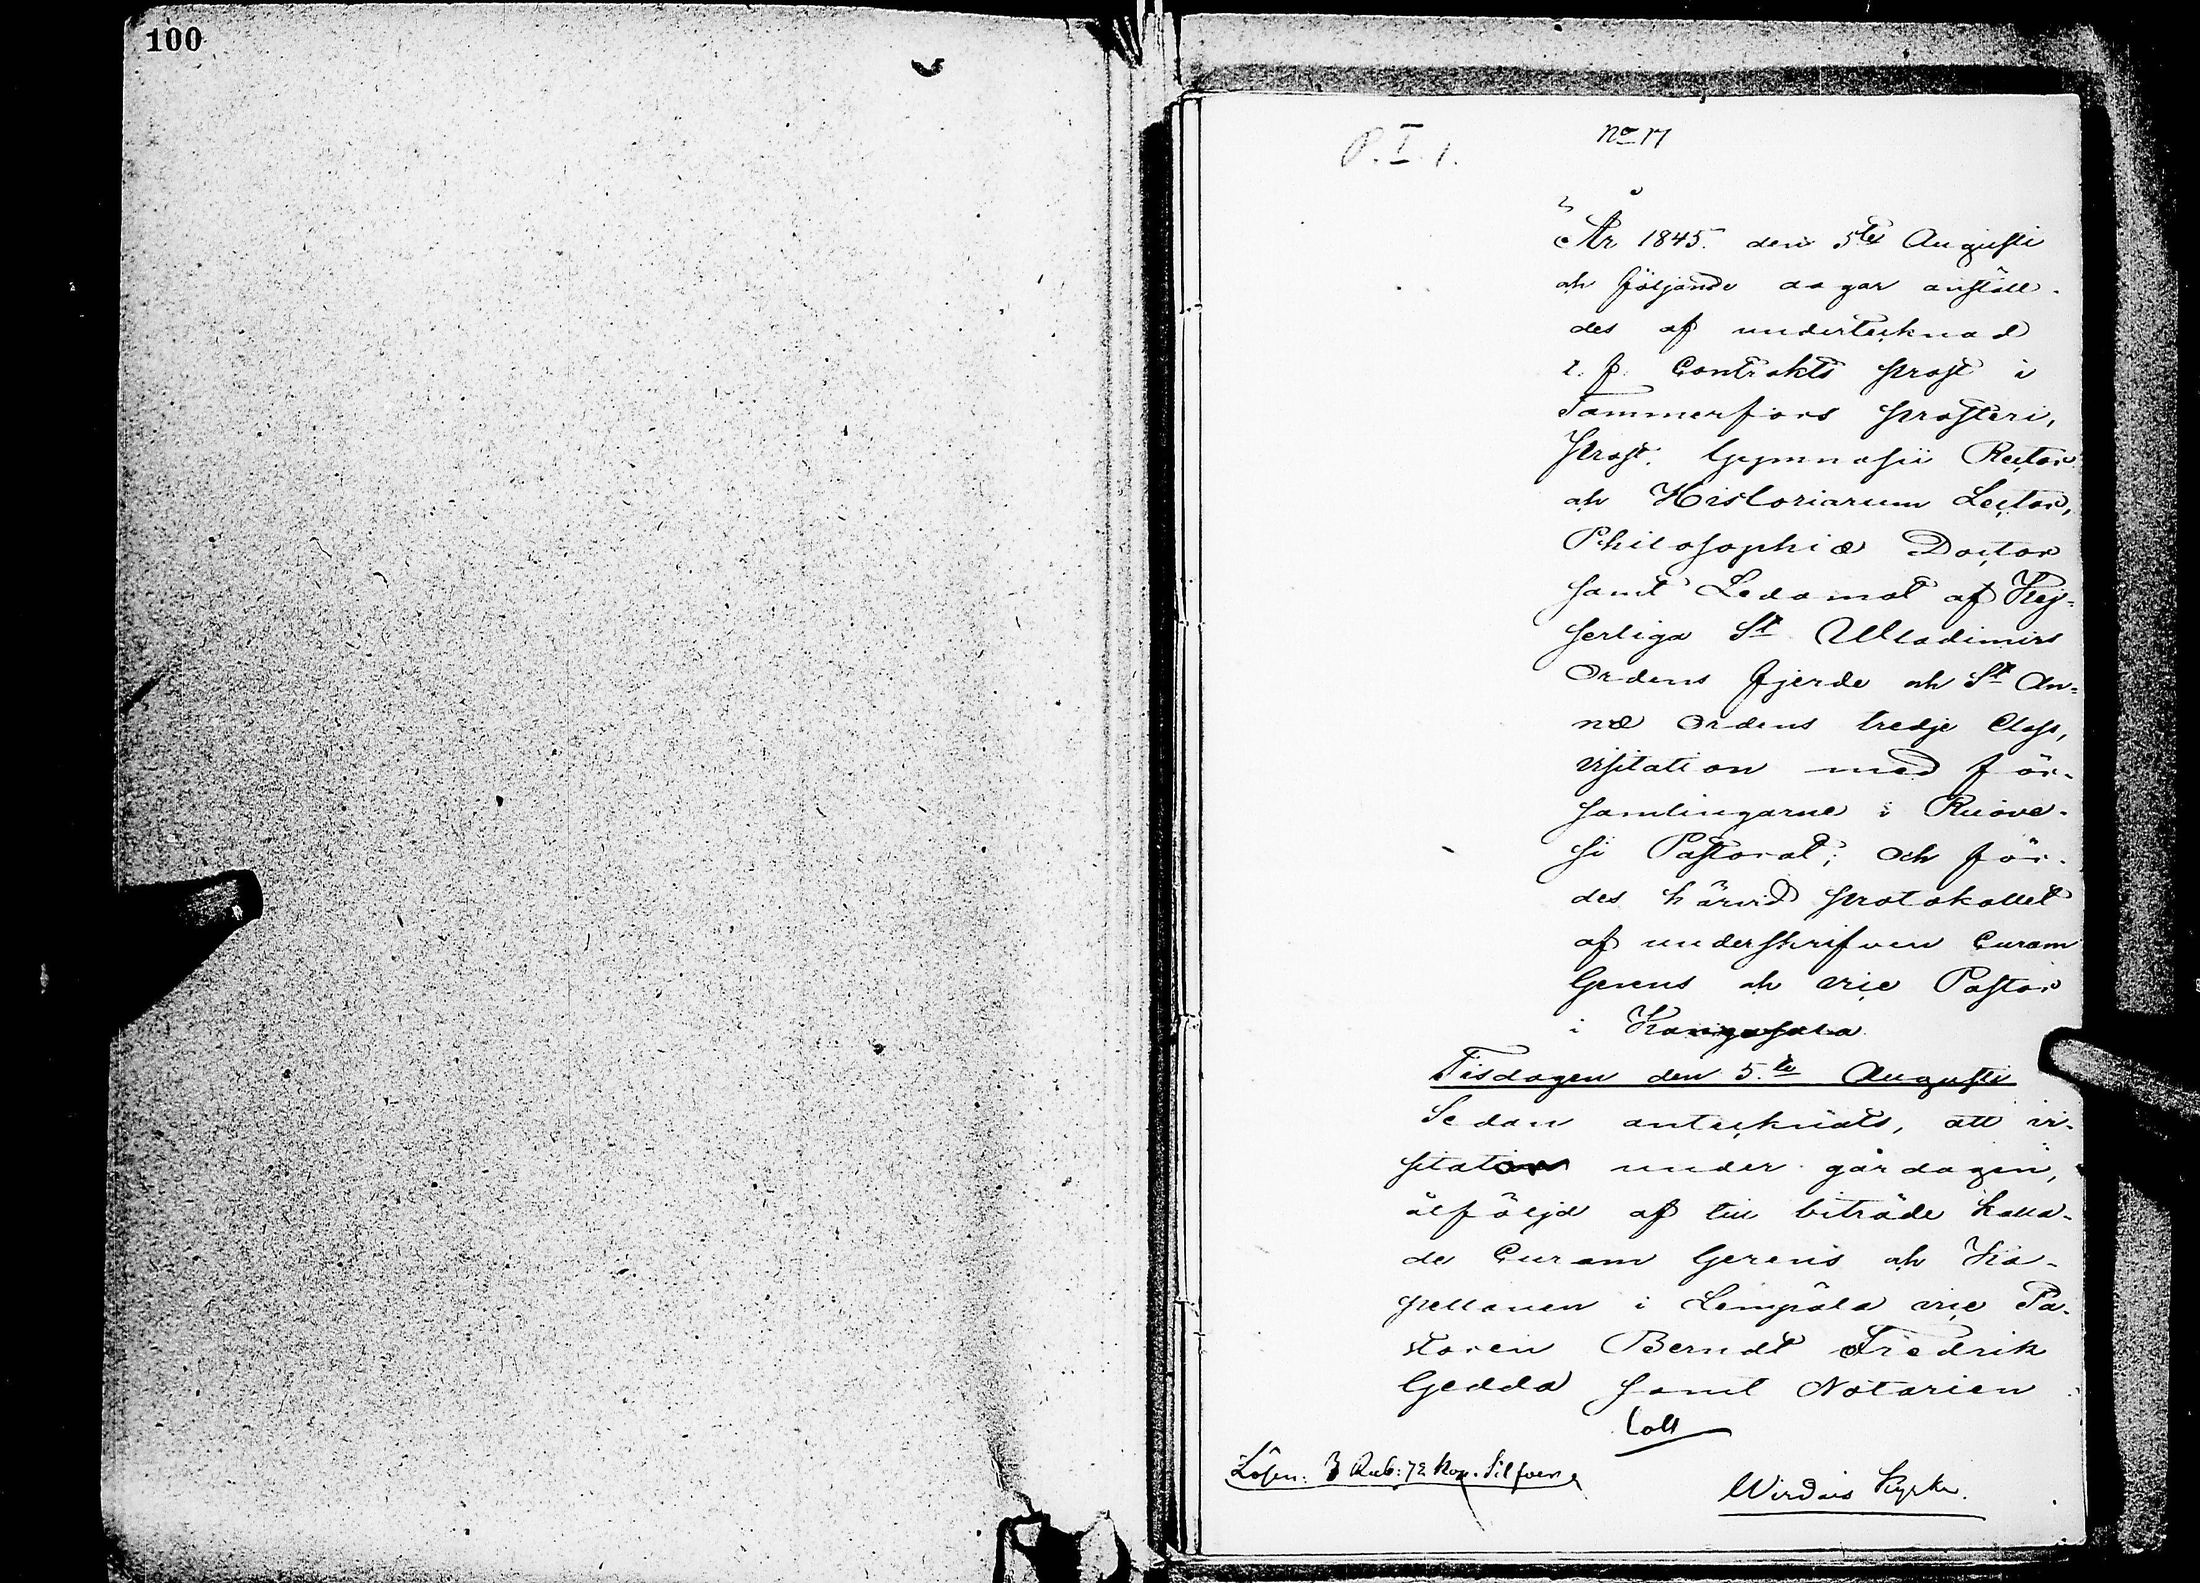 100
P. I. 1.
No 17
År 1845. den 5te Augusti
och följande dagar anställ-
des af undertecknad
t. f. Contrakts prost i
Tammerfors prosteri,
Prost. Gymnasii Rector
och Historiarum Lector,
Philosophiæ Doctor
samt Ledamot af Kej-
serliga St Wladimirs
Ordens fjerde och St An-
næ Ordens tredje Class,
visitation med för-
samlingarne i Ruove-
si Pastorat; och för-
des härvid protokollet
af underskrifven Curam
Gerens och vice Pastor
i Kangasala
Tisdagen den 5.te Augusti
Sedan antecknats, att vi-
sitator under gårdagen,
åtföljd af till biträde kalla-
de Curam Gerens och Ka-
pellanen i Lempäla vice Pa-
storen Berndt Fredrik
Gedda samt Notarien
Coll
Lösen: 3 Rub: 72 Kop. Silfver
Wirdois Kyrka.